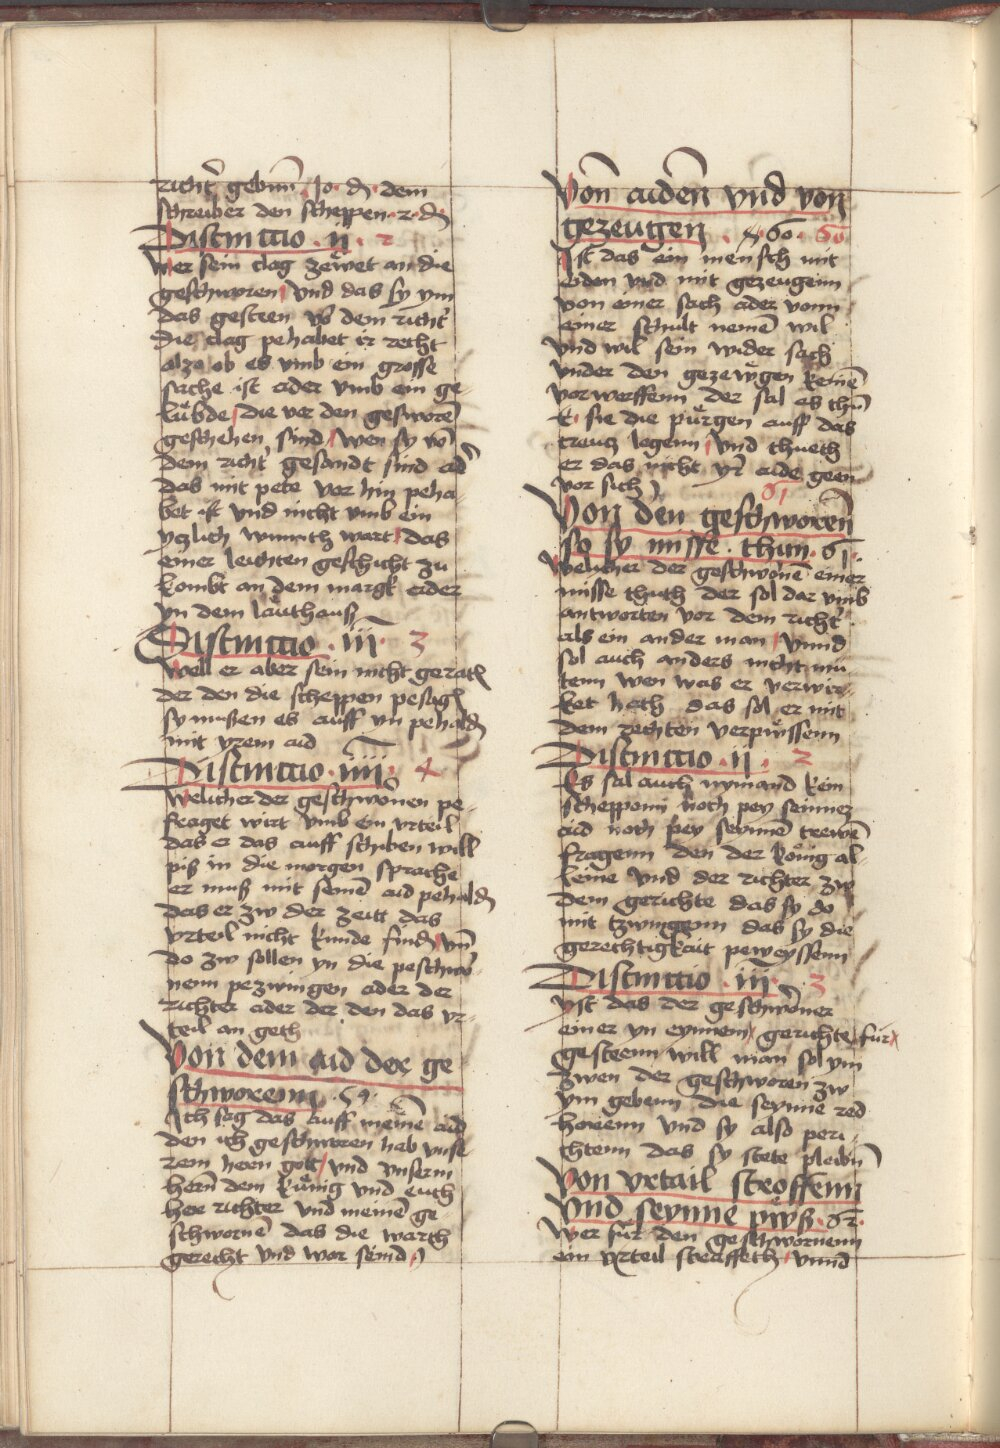 richt' gebnn̄ . Jo . d̄ . dem
schreiber den scheppen . 2 . d̄
Distinctio . ii . 2
Wer sein clag zewet an die
geschworen / vnd das sy ym
das gesteen vo dem richt'
die clag pehabet ir recht
alzo ob es vmb ein grosse
sache ist ader vmb ein ge-
lubde / die vor den gesworē
geschehen sind / wen sy vō
dem richt' gesandt sind ad'
das mit pete vor hin peha-
bet ist vnd nicht vmb ein
yczlich wart / das
einer leichten geschicht zu
kombt an dem margk eider
yn dem lauthauß
Distinctio . iii . 3
Well er aber sein nicht
der den die scheppen pesag
sy mußen es auff yn pehald
mit yrem aid
Distinctio . iiii . 4
Welicher der geschwonen pe-
fraget wirt vmb ein vrteil
das er das auff schiben will
piß in die morgen sprache
er muß mit seinē aid pehald
das er zw der zeitt das
vrteil nicht kunde find / vn̄
do zw sollen yn die peschwo-
nenn pezwingen ader der
richter ader der den das vr-
teil an geth
Von dem aid der ge
schworenn . 59 .
Ich sag das auff meinē aid
den ich geschworen hab vnse
rem heren gott / vnd vnserm
hern dem kunig vnd euch
her richter vnd meinen ge-
schwornē das die warth
gerecht vnd wor seind
Von aiden vnd von
gezeugen . 60 . 60
Ist das ein mensch mit
eiden vnd mit gezeugenn
von einer sach ader vonn
einer schult nemē wil
vnd wil sein wider sach
vnder den gezewgen keinē
vorwerffenn der sal es thū
E . sie die purgen auff das
creucz legenn / vnd thueth
er das nicht yr aide geen
vor sich
61
Von den geschworenn
so sy misse . thun . 61 .
Welicher der geschwonē einer
misse thuth der sol dar vmb
antworten vor dem richt'
als ein ander man / vnnd
sol auch anders nicht mu-
tenn wen was er verwir-
ket hath das sol er mit
dem rechten verpussenn
Distinctio . ii . 2
Es sal auch nymand kein
scheppenn noch pey seinner
aid noch pey seynnē trewē
fragenn den der konig al-
leine vnd der richter zw
dem gerichte das sy do
mit tzwingenn das sy die
gerechtigkait peweyssenn
Distinctio . iii . 3
Yst das der geschwoner
einer yn eynnem gerichte fur
gesteenn will man sol ym
zwen der geschworen zw
ym gebenn die seynne red
horenn vnd sy also peri-
chtenn das sy stete pleibn̄
Von vrtail stroffenn
vnd seynne pwß . 62 .
Wer fur den geschwornenn
ein vrteil straffeth / vnnd